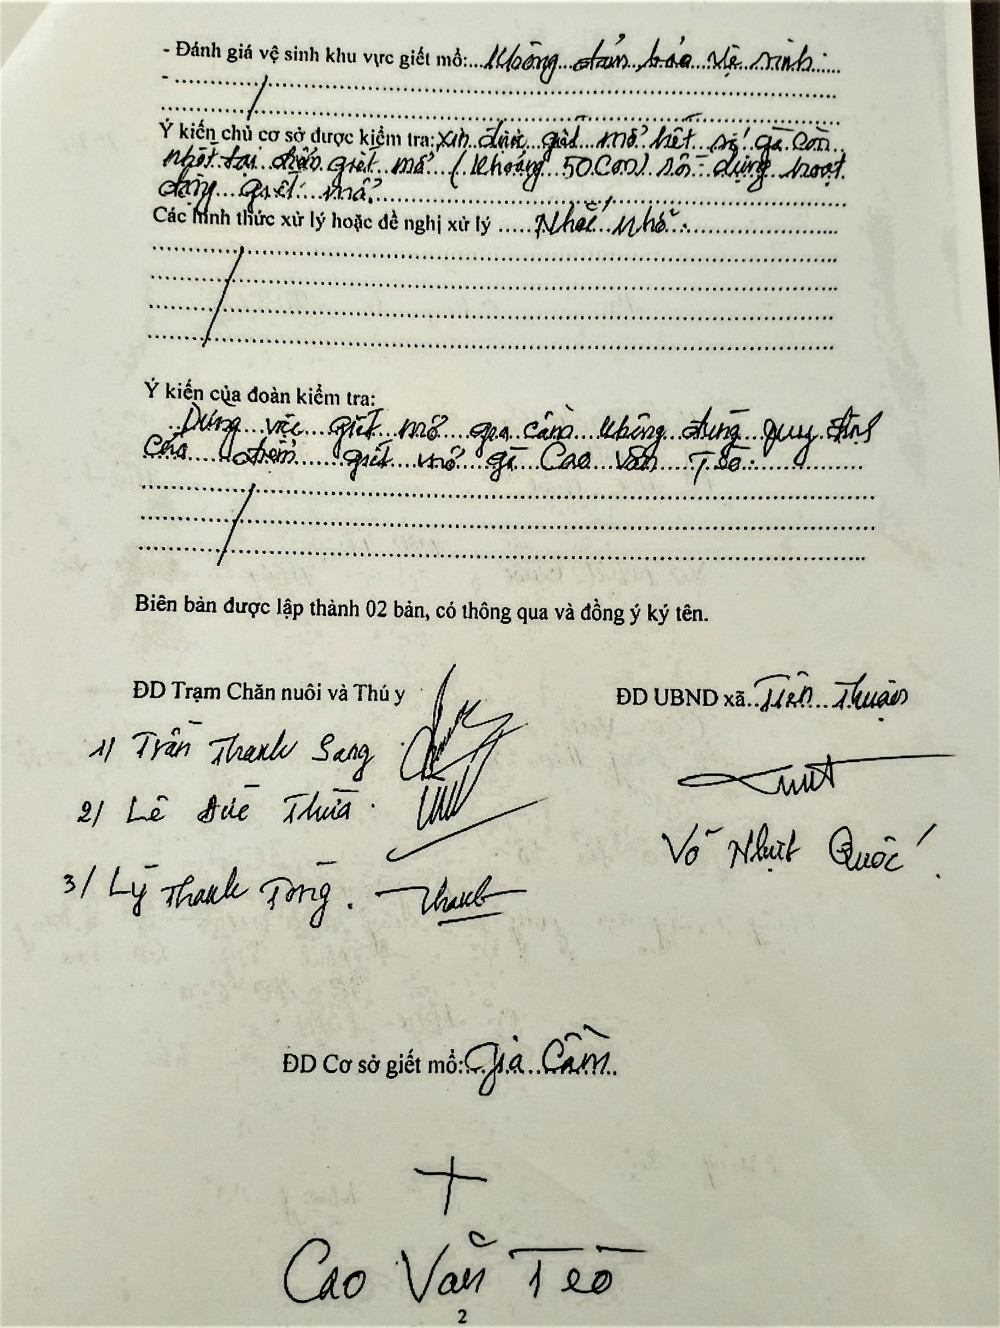 - Đánh giá vệ sinh khu vực giết mổ:...Không đảm bảo vệ sinh.
-
Ý kiến chủ cơ sở được kiểm tra: xin được giết mổ hết số gà còn
nhốt tại điểm giết mổ (khoảng 50 con) rồi dừng hoạt
động giết mổ.
Các hình thức xử lý hoặc đề nghị xử lý ..... Nhắc nhở.
Ý kiến của đoàn kiểm tra:
Dừng việc giết mổ gia cầm không đúng quy định
của điểm giết mổ gà Cao Văn Tèo.
Biên bản được lập thành 02 bản, có thông qua và đồng ý ký tên.
ĐD Trạm Chăn nuôi và Thú y
ĐD UBND xã..Tiên Thuận
1) Trần Thanh Sang
2) Lê Đức Thừa
Võ Nhựt Quốc
3/ Lý Thanh Tòng. Thanh
ĐD Cơ sở giết mổ: Gia Cầm
+
Cao Văn Tèo
2